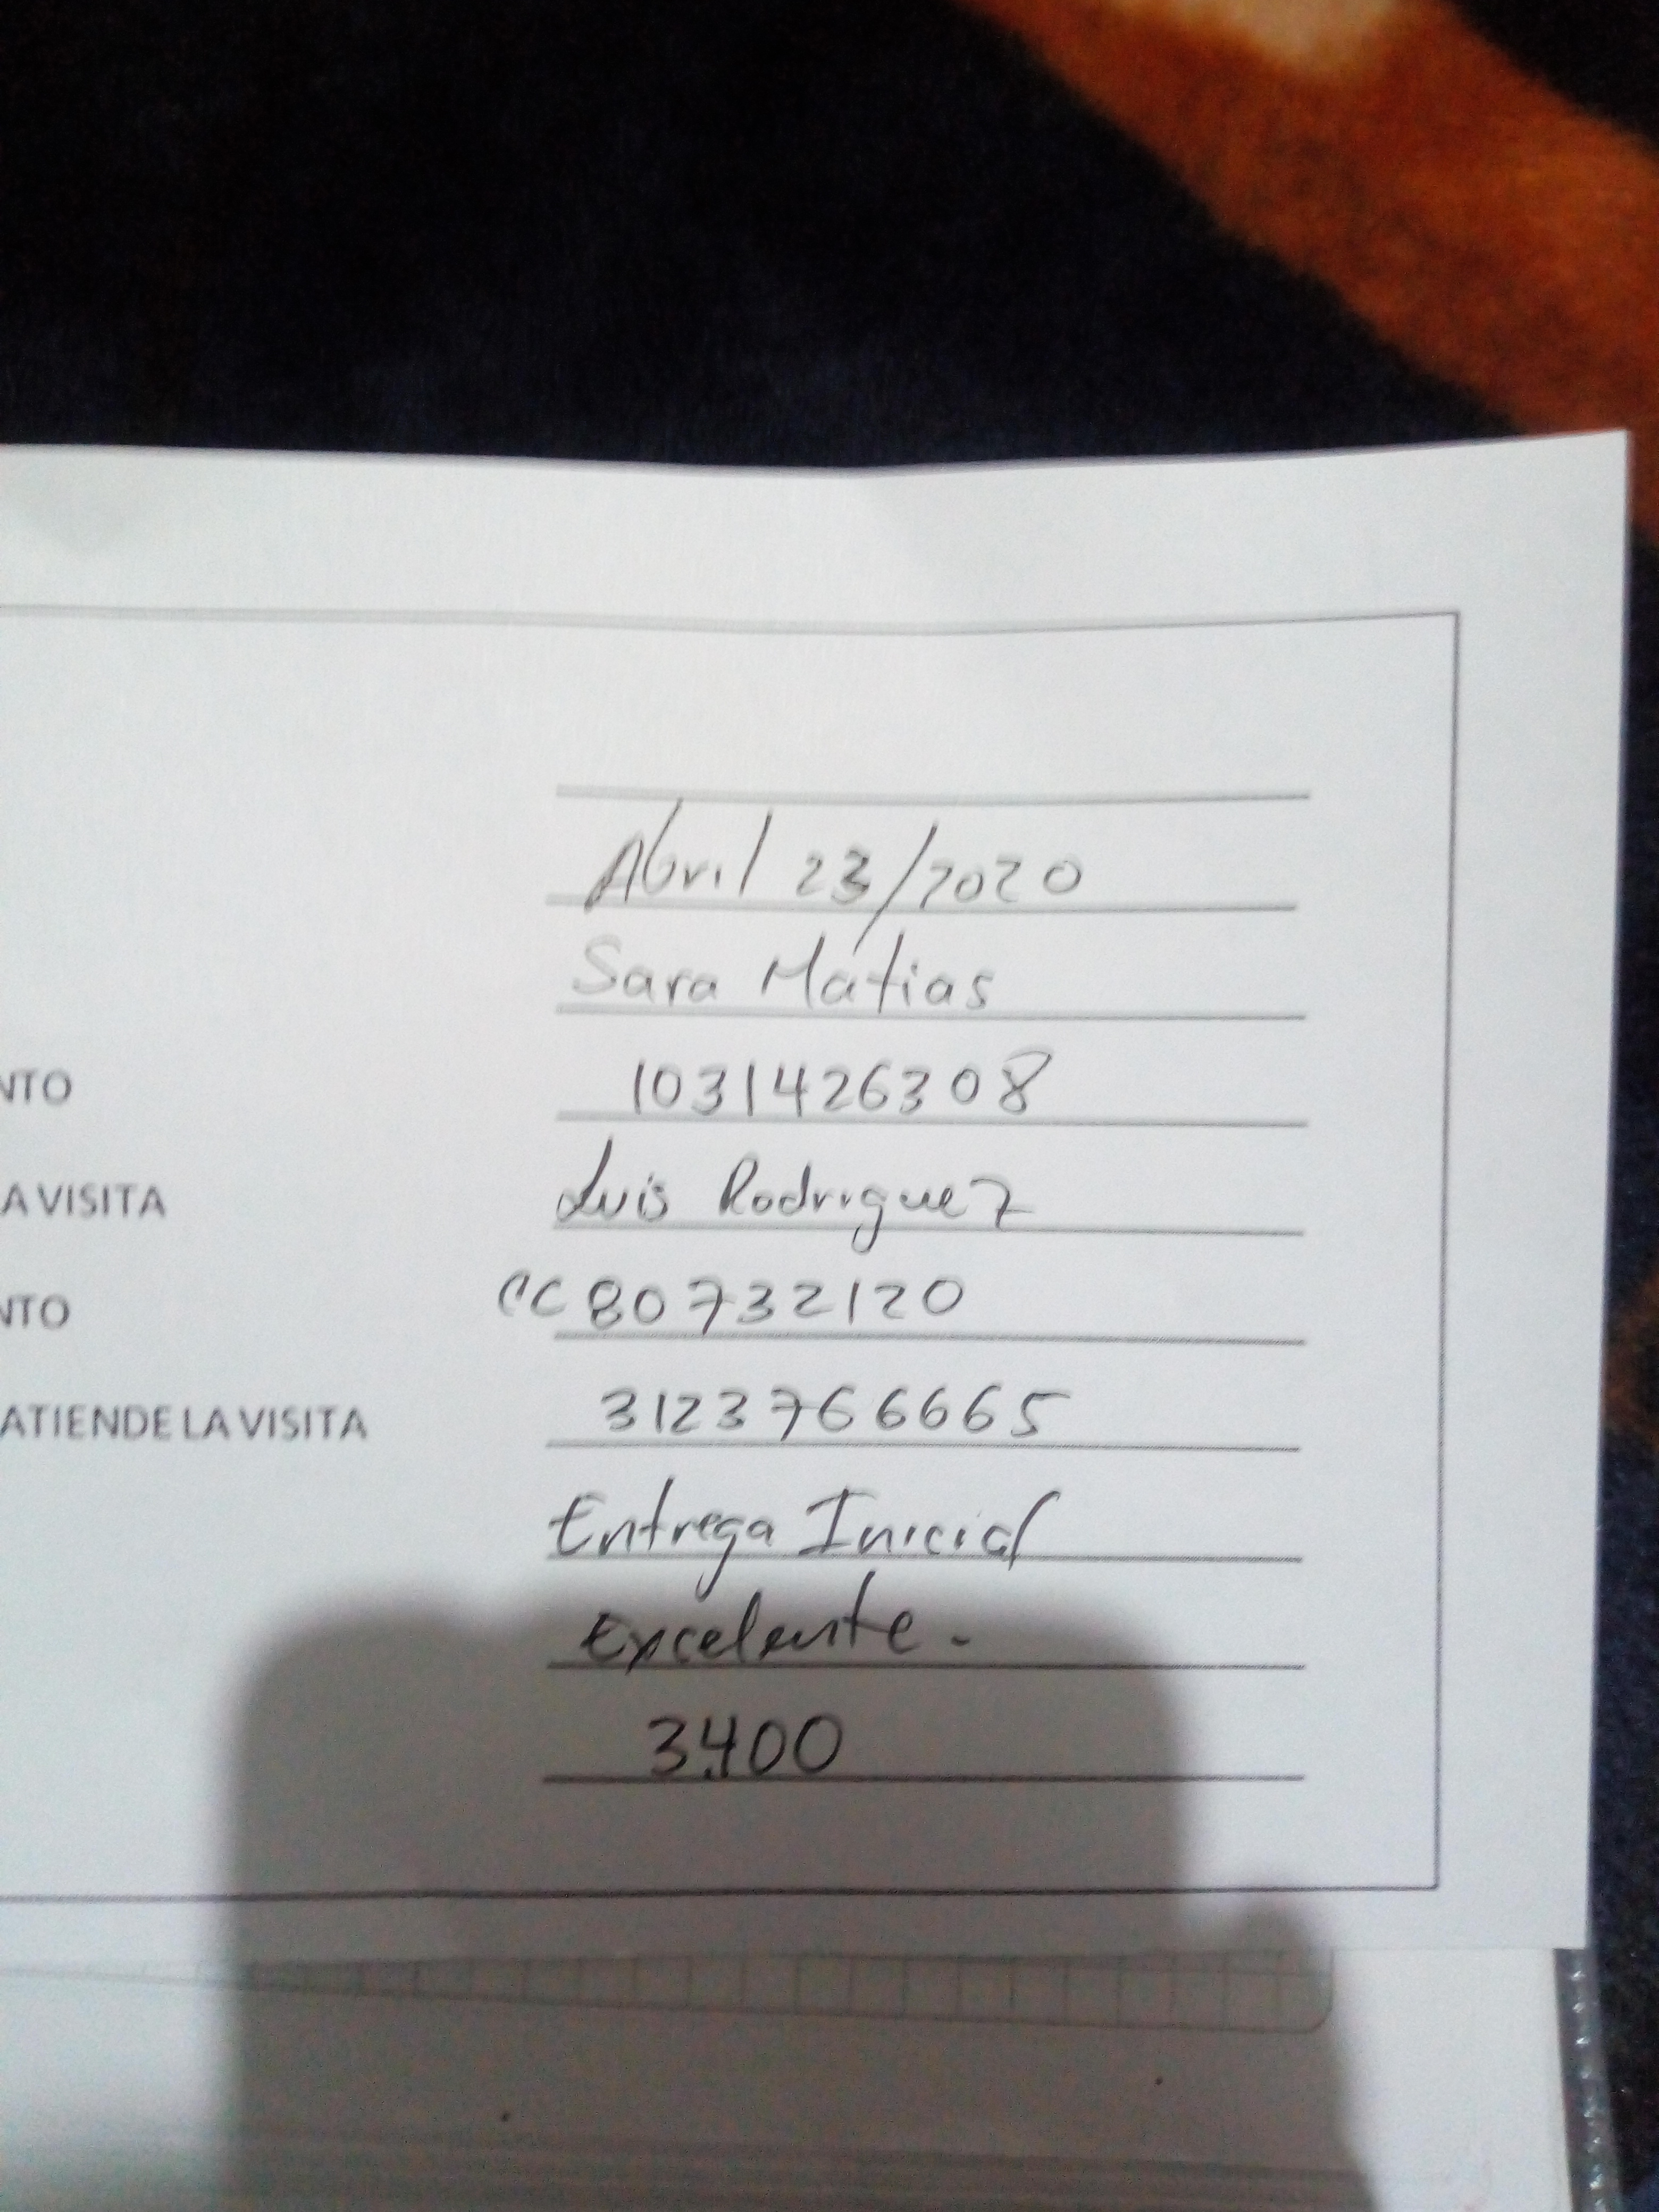 Abril 23/2020
Sara Matias
NTO 1031426308
A VISITA Luis Rodriguez
NTO CC 80732120
ATIENDE LA VISITA 3123766665
Entrega Inicial
Excelente.
3.400